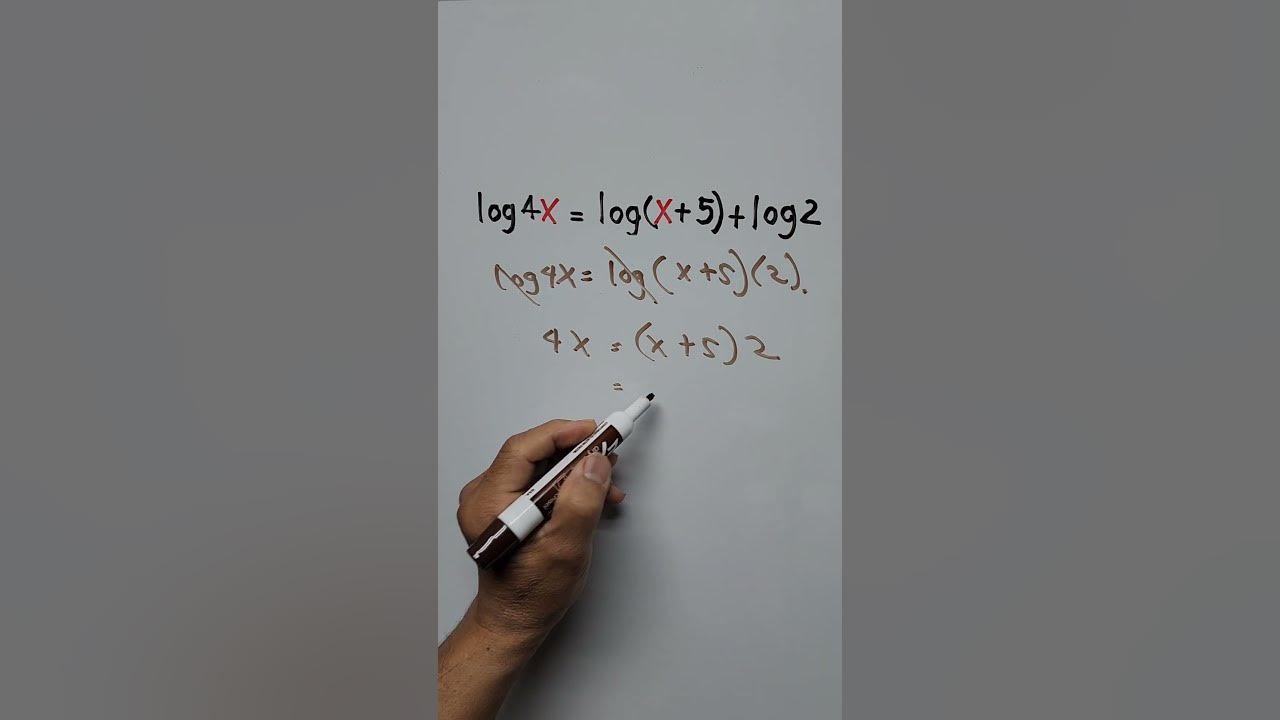 log4x = log(x+5)+log2
log4x = log(x+5)(2).
4x = (x+5)2
=